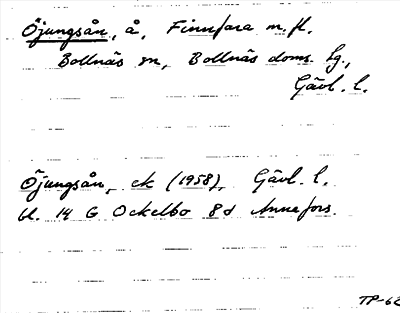 Öjungsån, å, Finnfara m.fl.
Bollnäs sn, Bollnäs doms. lg.,
Gävl. l.
Öjungsån, ek (1958), Gävl. l.
bl. 14 G Ockelbo 8d Annefors.
TP-62